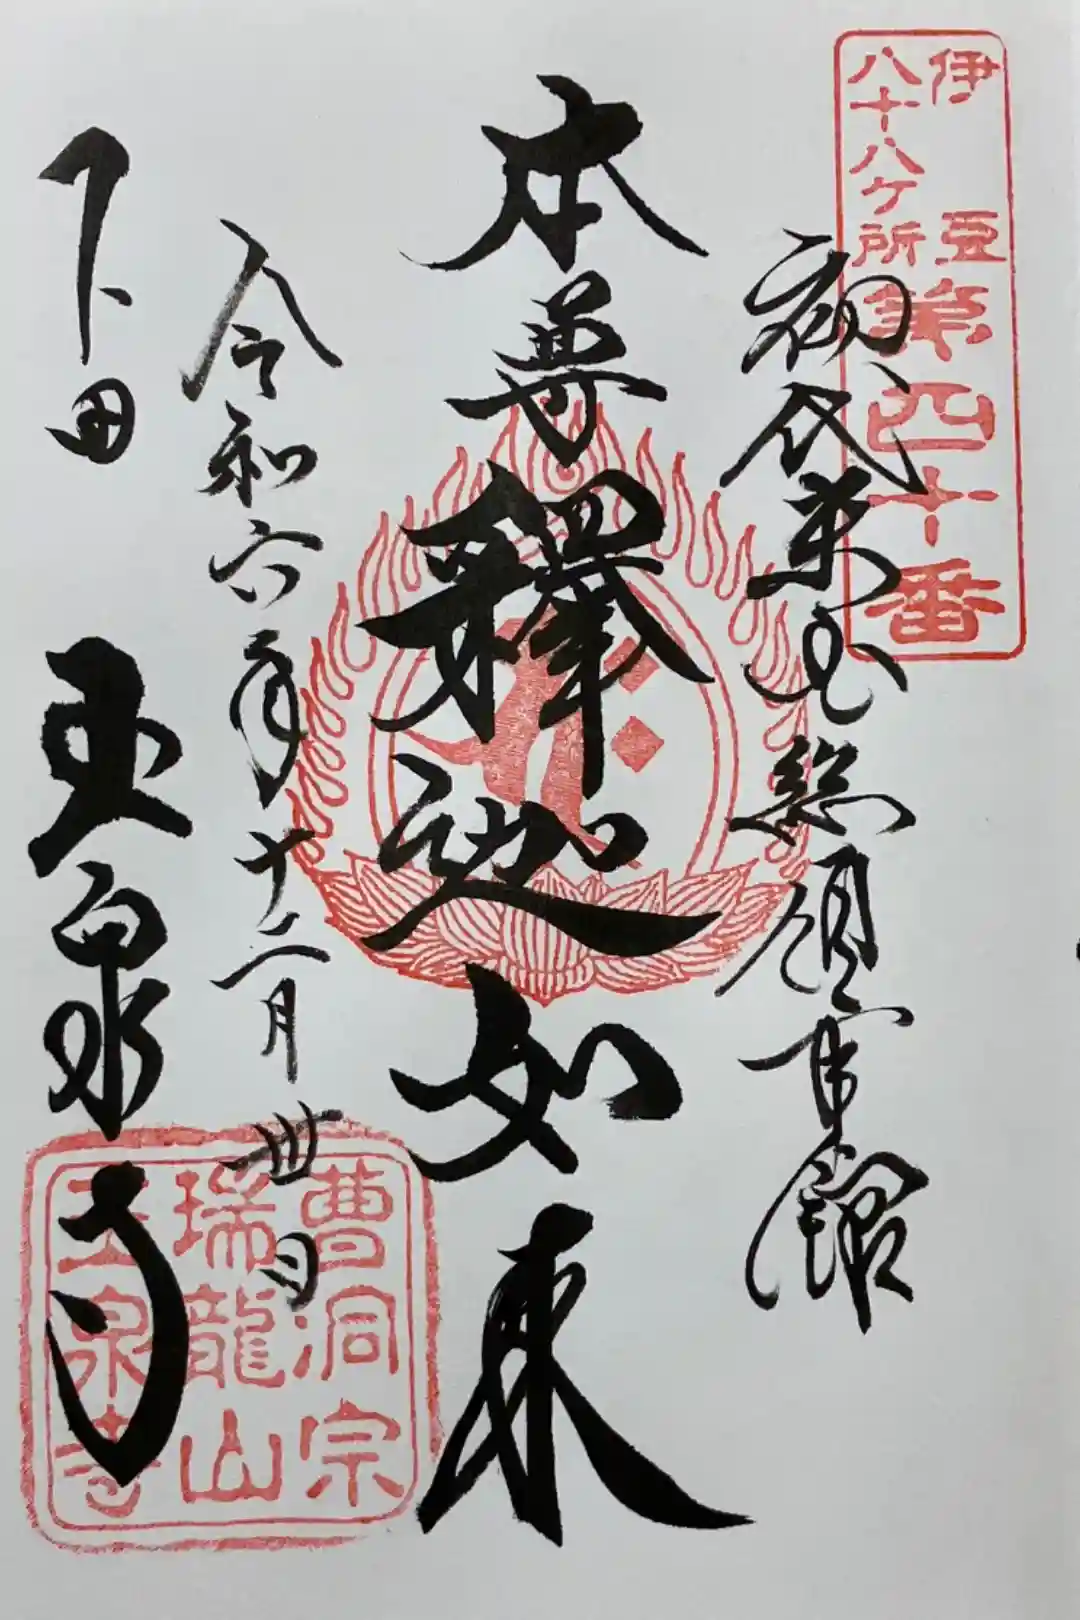 伊豆
八十八ケ所
第四十番
初代米国総領事館
本尊釋迦如来
令和六年十二月卅日
下田
玉泉寺
曹洞宗
瑞龍山
玉泉寺